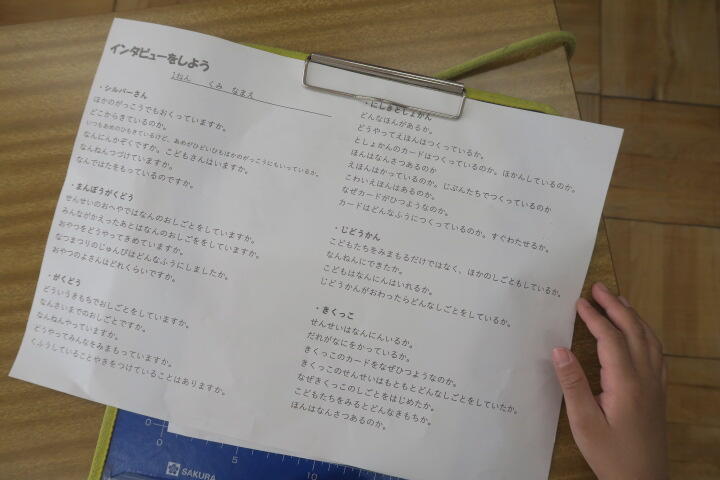 インタビューをしよう
1ねん　くみ　なまえ
・シルバーさん
ほかのがっこうでもおくっていますか。
どこからきているのか。
いつもあめのひもきているけど、あめがひどいひもほかのがっこうにもいっているか。
なんにんかぞくですか。こどもさんはいますか。
なんねんつづけていますか。
なんではたをもっているのですか。
・まんぼうがくどう
せんせいのおへやではなんのおしごとをしていますか。
みんながかえったあとはなんのおしごとをしていますか。
おやつをどうやってきめていますか。
なつまつりのじゅんびはどんなふうにしましたか。
おやつのよさんはどれくらいですか。
・がくどう
どういうきもちでおしごとをしていますか。
なんさいまでのおしごとですか。
なんねんやっていますか。
どうやってみんなをみまもっていますか。
くふうしていることやきをつけていることはありますか。
・にしきとしょかん
どんなほんがあるか。
どうやってえほんはつくっているか。
としょかんのカードはつくっているのか。ほかんしているのか。
ほんはなんさつあるのか
えほんはかっているのか。じぶんたちでつくっているのか
こわいえほんはあるのか。
なぜカードがひつようなのか。
カードはどんなふうにつくっているのか。すぐわたせるか。
・じどうかん
こどもたちをみまもるだけではなく、ほかのしごともしているか。
なんねんにできたか。
こどもはなんにんはいれるか。
じどうかんがおわったらどんなしごとをしているか。
・きくっこ
せんせいはなんにんいるか。
だれがなにをかっているか。
きくっこのカードをなぜひつようなのか。
きくっこのせんせいはもともとどんなしごとをしていたか。
なぜきくっこのしごとをはじめたか。
こどもたちをみるとどんなきもちか。
ほんはなんさつあるのか。
0
0 5 10
SAKURA